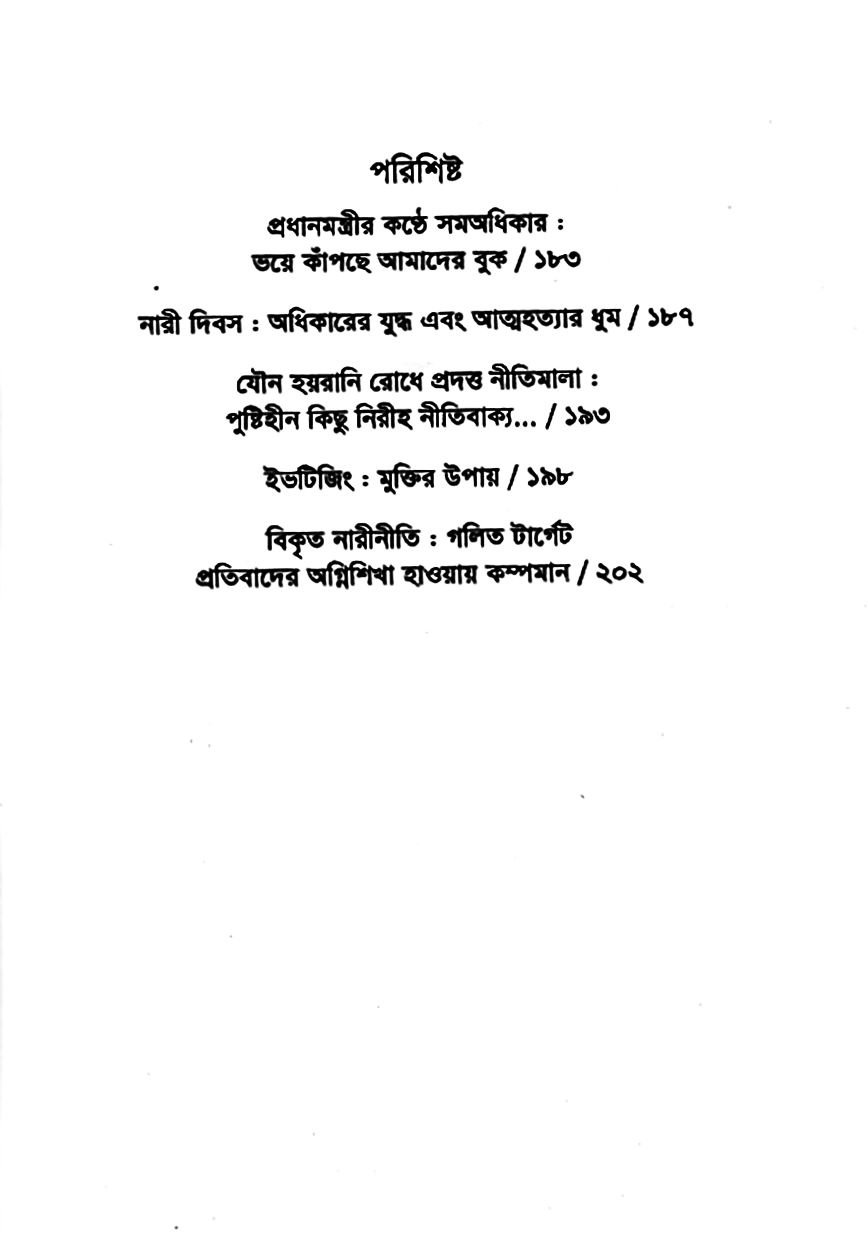 পরিশিষ্ট
প্রধানমন্ত্রীর কণ্ঠে সমঅধিকার :
ভয়ে কাঁপছে আমাদের বুক / ১৮৩
নারী দিবস : অধিকারের যুদ্ধ এবং আত্মহত্যার ধুম / ১৮৭
যৌন হয়রানি রোধে প্রদত্ত নীতিমালা :
পুষ্টিহীন কিছু নিরীহ নীতিবাক্য... / ১৯৩
ইভটিজিং : মুক্তির উপায় / ১৯৮
বিকৃত নারীনীতি : গলিত টার্গেট
প্রতিবাদের অগ্নিশিখা হাওয়ায় কম্পমান / ২০২